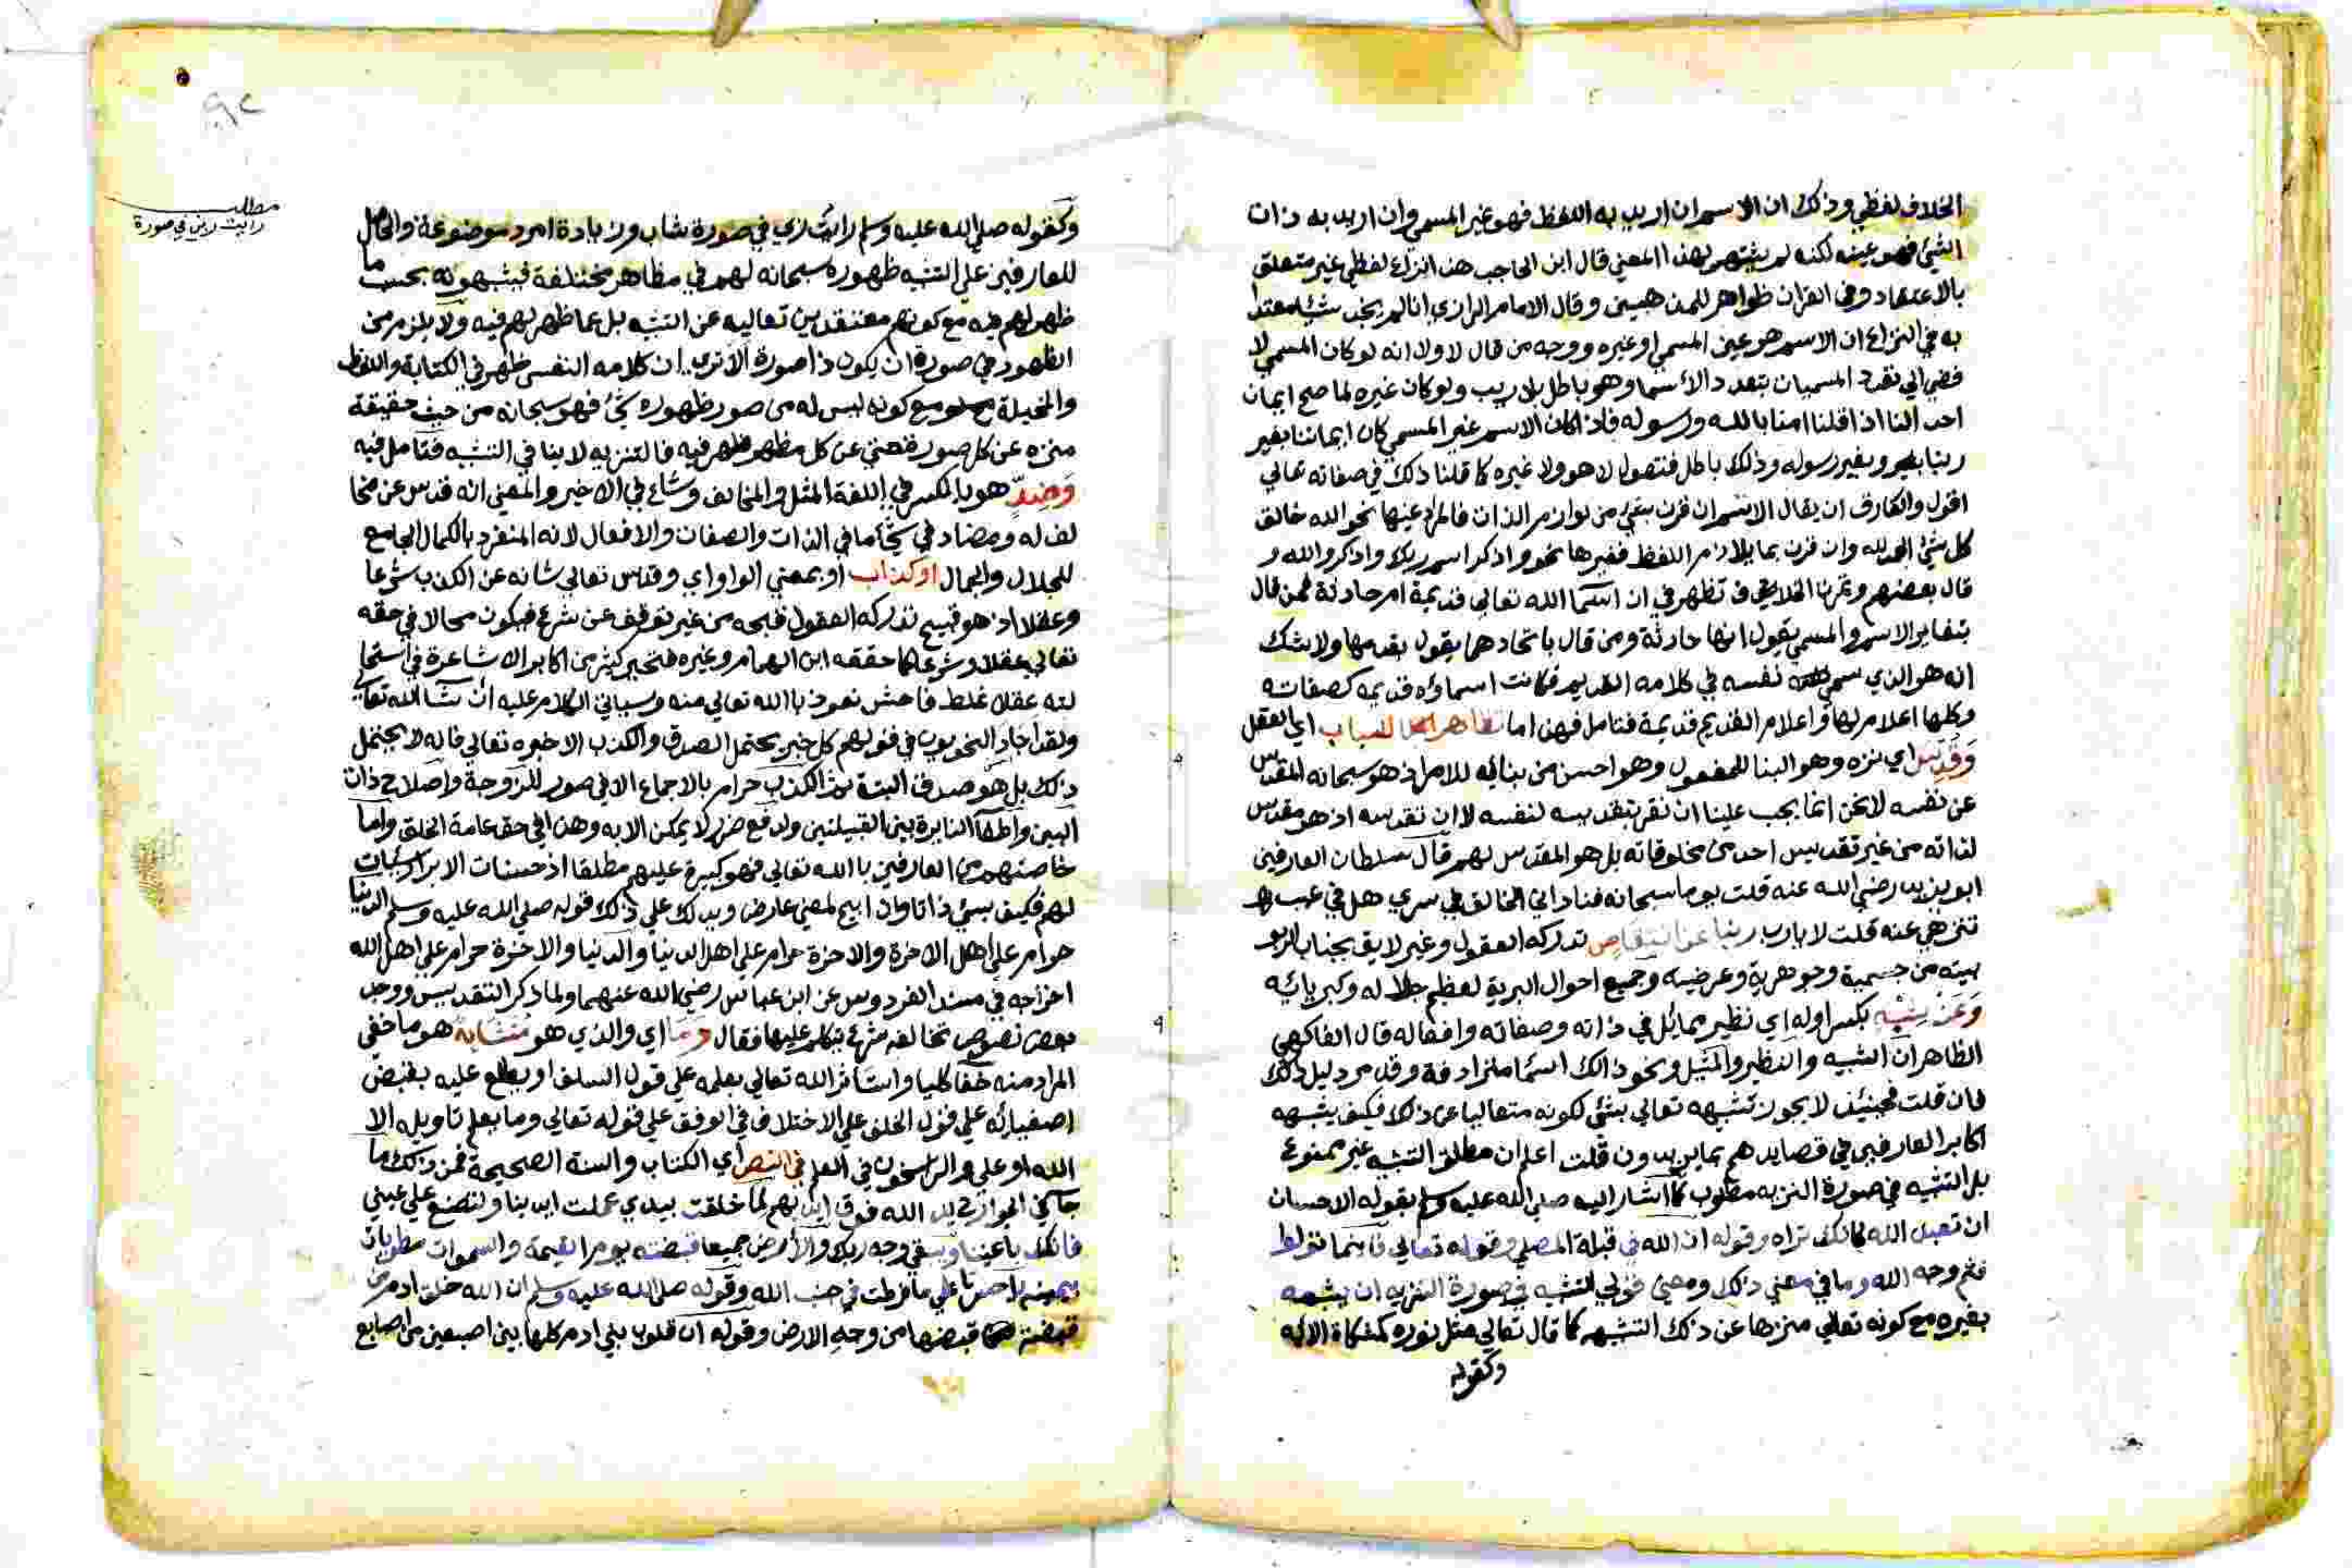 الخلاف لفظي وذلك ان الاسم ان اريد به اللفظ فهو غير المسمي وان اريد به ذات
الشيئ فهو عينه لكنه لم يشتهر بهذا المعني قال ابن الحاجب هذا النزاع لفظي غير متعلق
بالاعتقاد وفي القران ظواهر للمذهبين وقال الامام الرازي انا لم نجد شيئا معتدا
به في النزاع ان الاسم هو عين المسمي او غيره ووجه من قال لا ولا انه لو كان المسمي لا
فضي الي تعدد المسميات بتعدد الأسما وهو باطل بلا ريب ولو كان غيره لما صح ايمان
احد النا اذا قلنا امنا بالله ورسوله فاذا كان الاسم غير المسمي كان ايماننا بغير
ربنا وبغير رسوله وذلك باطل فنقول لا هو ولا غيره كما قلنا ذلك في صفاته تعالي
اقول والفارق ان يقال الاسم ان قرن بشيئ من لوازم الذات فالمراد عينها نحو الله خالق
كل شيئ الحمد لله وان قرن بما يلازم اللفظ فغيرها نحو واذكر اسم ربك واذكروا الله و
قال بعضهم وثمرة الخلاف تظهر في ان اسما الله تعالي قديمة ام حادثة فمن قال
بتغاير الاسم والمسمي يقول انها حادثة ومن قال باتحادهما يقول بقدمها ولا شك
انه هو الذي سمي نفسه في كلامه القديم فكانت اسماؤه قديمة كصفاته
وكلها اعلام لها واعلام القديم قديمة فتامل فهن اما تظاهر لباب اي العقل
وَقُدِّس اي نزه وهو البنا للمفعول وهو احسن من بنائه للامر اذ هو سبحانه المقدس
عن نفسه لا نحن انما يجب علينا ان نقر بتقديسه لنفسه لا ان نقدسه اذ هو مقدس
لذاته من غير تقديس احد من مخلوقاته بل هو المقدس لهم قال سلطان العارفين
ابو يزيد رضي الله عنه قلت يوما سبحانه فناداني الخالق في سري هل في عيب
تنزهني عنه قلت لا يارب ربنا عن انتقاص تدركه العقول وغير لايق بجناب الربو
بيته من جسمية وجوهرية وعرضية وجميع احوال البرية لعظم جلاله وكبريائه
وَعَن شِبْهٍ بكسر اوله اي نظير مماثل في ذاته وصفاته وافعاله قال الفاكهي
الظاهر ان الشبيه والنظير والمثيل ونحو ذالك اسما مترادفة وقد مر دليل ذلك
فان قلت فحينئذ لا يجوز تشبهه تعالي بشيئ لكونه متعاليا عن ذلك فكيف يشبهه
اكابر العارفين في قصايدهم بما يريدون قلت اعلم ان مطلق التشبيه غير ممنوع
بل التشبيه في صورة التنزيه مطلوب كما اشار اليه صلي الله عليه وسلم بقوله الاحسان
ان تعبد الله كانك تراه وقوله ان الله في قبلة المصلي وقوله تعالي فاينما تولوا
فثم وجه الله وما في معني ذلك ومعني قولي التشبيه في صورة التنزيه ان يشبهه
بغيره مع كونه تعالي منزها عن ذلك التشبيه كما قال تعالي مثل نوره كمشكاة الاية
وكقوله
وكقوله صلي الله عليه وسلم رايت ربي في صورة شاب وزيادة امرد موضوعة والحامل
للعارفين علي التشبيه ظهوره سبحانه لهم في مظاهر مختلفة فيشبهونه بحسب ما
ظهر لهم فيه مع كونهم معتقدين تعاليه عن التشبيه بل عما ظهر لهم فيه ولا يلزم من
الظهور في صورة ان يكون ذا صورة الا تري ان كلامه النفسي ظهر في الكتابة واللفظ
والمخيلة مع كونه ليس له من صور ظهوره شيئ فهو سبحانه من حيث حقيقته
منزه عن كل صورة غني عن كل مظهر ظهر فيه فالتنزيه لا ينافي التشبيه فتامل فيه
وَضِدٍّ هو بالكسر في اللغة المثل والمخالف وشاع في الاخير والمعني انه قدس عن مخا
لف له ومضاد في شيئ ما في الذات والصفات والافعال لانه المنفرد بالكمال الجامع
للجلال والجمال او كذاب او بمعني الواو اي وقدس تعالي شانه عن الكذب شرعا
وعقلا اذ هو قبيح تدركه العقول قبحه من غير توقف عن شرع فيكون محالا في حقه
تعالي عقلا وشرعا كما حققه ابن الهمام وغيره فتحير كثير من اكابر الاشاعرة في استحا
لته عقلا غلط فاحش نعوذ بالله تعالي منه وسياتي الكلام عليه ان شا الله تعالي
ولقد اجاد النحويون في قولهم كل خبر يحتمل الصدق والكذب الا خبره تعالي فانه لا يحتمل
ذلك بل هو صدق البتة ثم الكذب حرام بالاجماع الا في صور للزوجة واصلاح ذات
البين واطفا النايرة بين القبيلتين ولدفع ضرر لا يمكن الا به وهذا في حق عامة الخلق واما
خاصتهم من العارفين بالله تعالي فهو كبيرة عليهم مطلقا اذ حسنات الابرار سيات
لهم فكيف بسيئ ذاتا وان ابيح لمعني عارض ويدلك علي ذلك قوله صلي الله عليه وسلم الدنيا
حرام علي اهل الاخرة والاخرة حرام علي اهل الدنيا والدنيا والاخرة حرام علي اهل الله
اخرجه في مسند الفردوس عن ابن عباس رضي الله عنهما ولما ذكر التقديس ووجد
بعض نصوص تخالفه شرع يتكلم عليها فقال وَمَا اي والذي هو مُتَشَابِهٌ هو ما خفي
المراد منه خفا كليا واستاثر الله تعالي بعلمه علي قول السلف او يطلع عليه بعض
اصفيائه علي قول الخلف علي الاختلاف في الوقف علي قوله تعالي وما يعلم تاويله الا
الله او علي والراسخون في العلم في النص اي الكتاب والسنة الصحيحة فمن ذلك ما
جا في يد الله فوق ايديهم لما خلقت بيدي عملت ايدينا ولتصنع علي عيني
فانك باعيننا ويبقي وجه ربك والارض جميعا قبضته يوم القيمة والسموات مطويات
بيمينه يا حسرتا علي ما فرطت في جنب الله وقوله صلي الله عليه وسلم ان الله خلق ادم من
قبضة قبضها من وجه الارض وقوله ان قلوب بني ادم كلها بين اصبعين من اصابع
مطلب
رايت ربي في صورة